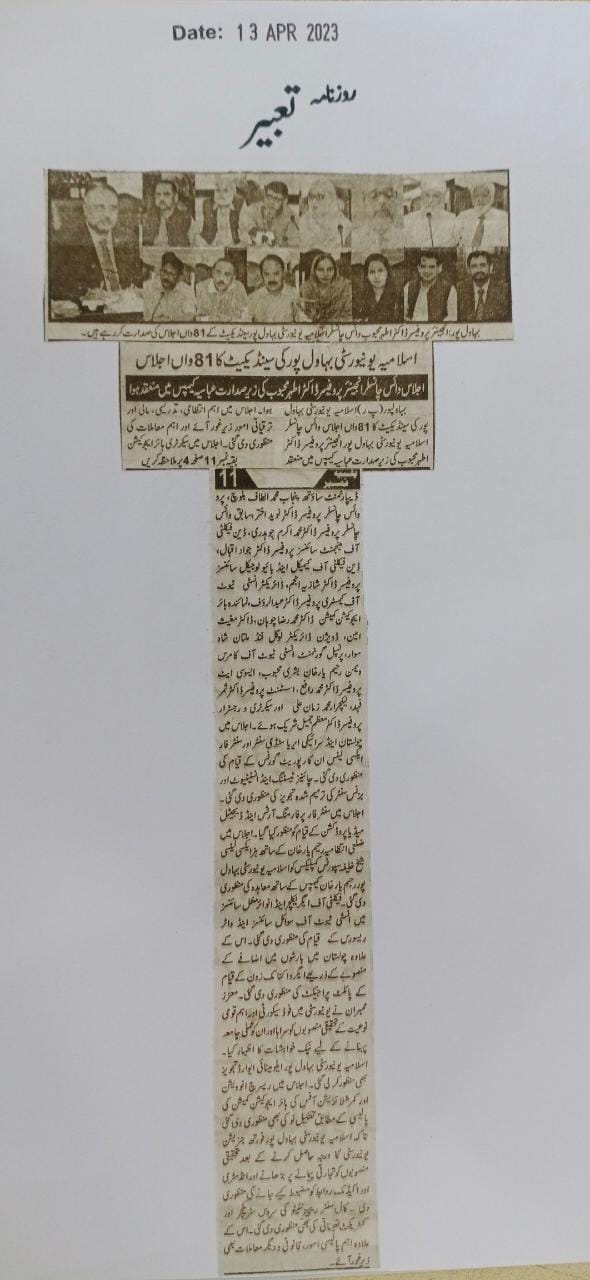 Date: 13 APR 2023
روزنامہ تعبیر
بہاول پور: انجینئر پروفیسر ڈاکٹر اطہر محبوب وائس چانسلر اسلامیہ یونیورسٹی بہاول پور سینڈیکیٹ کے 81 واں اجلاس کی صدارت کر رہے ہیں۔
اسلامیہ یونیورسٹی بہاول پور کی سینڈیکیٹ کا 81 واں اجلاس
اجلاس وائس چانسلر انجینئر پروفیسر ڈاکٹر اطہر محبوب کی زیر صدارت عباسیہ کیمپس میں منعقد ہوا
بہاولپور (پ ر) اسلامیہ یونیورسٹی بہاول
پور کی سینڈیکیٹ کا 81 واں اجلاس وائس چانسلر
اسلامیہ یونیورسٹی بہاول پور انجینئر پروفیسر ڈاکٹر
اطہر محبوب کی زیر صدارت عباسیہ کیمپس میں منعقد
ہوا۔ اجلاس میں اہم انتظامی، تدریسی، مالی اور
ترقیاتی امور زیر غور آئے اور اہم معاملات کی
منظوری دی گئی۔ اجلاس میں سیکرٹری ہائر ایجوکیشن
بقیہ نمبر 11 صفحہ 4 پر ملاحظہ کریں
بقیہ 11
ڈیپارٹمنٹ ساؤتھ پنجاب محمد الطاف بلوچ، پرو
وائس چانسلر پروفیسر ڈاکٹر نوید اختر، سابق وائس
چانسلر پروفیسر ڈاکٹر محمد اکرم چوہدری، ڈین فیکلٹی
آف مینجمنٹ سائنسز پروفیسر ڈاکٹر جواد اقبال،
ڈین فیکلٹی آف کیمیکل اینڈ بائیولوجیکل سائنسز
پروفیسر ڈاکٹر شازیہ انجم، ڈائریکٹر انسٹی ٹیوٹ
آف کیمسٹری پروفیسر ڈاکٹر عبدالرؤف، نمائندہ ہائر
ایجوکیشن کمیشن ڈاکٹر محمد رضا چوہان، ڈاکٹر مغیث
امین، ڈویژنل ڈائریکٹر لوکل فنڈ ملتان شاہ
سوار، پرنسپل گورنمنٹ انسٹی ٹیوٹ آف کامرس
ویمن رحیم یار خان بشریٰ محبوب، ایسوسی ایٹ
پروفیسر ڈاکٹر محمد رافع، اسسٹنٹ پروفیسر ڈاکٹر ثمر
فہد، لیکچرار محمد زمان علی اور سیکرٹری و رجسٹرار
پروفیسر ڈاکٹر معظم جمیل شریک ہوئے۔ اجلاس میں
چولستان اینڈ سرائیکی ایریا سٹڈی سنٹر اور سنٹر فار
ایکسی لینس ان کارپوریٹ گورنس کے قیام کی
منظوری دی گئی۔ چائنیز ٹیسٹنگ اینڈ انسٹیٹیوٹ اور
بزنس سنٹر کی ترمیم شدہ تجویز کی منظوری دی گئی۔
اجلاس میں سنٹر فار پرفارمنگ آرٹس اینڈ ڈیجیٹل
میڈیا پروڈکشن کے قیام کو منظور کیا گیا۔ اجلاس میں
ضلعی انتظامیہ رحیم یار خان کے ساتھ ہز ایکسی لینسی
شیخ خلیفہ سپورٹس کمپلیکس کو اسلامیہ یونیورسٹی بہاول
پور رحیم یار خان کیمپس کے ساتھ معاہدہ کی منظوری
دی گئی۔ فیکلٹی آف ایگریکلچر اینڈ انوائرمنٹل سائنسز
میں انسٹی ٹیوٹ آف سوائل سائنسز اینڈ واٹر
ریسورس کے قیام کی منظوری دی گئی۔ اس کے
علاوہ چولستان میں بارشوں میں اضافے کے
منصوبے کے ذریعے ایگرو اکنامک زون کے قیام
کے پائلٹ پراجیکٹ کی منظوری دی گئی۔ معزز
ممبران نے یونیورسٹی میں فوڈ سیکورٹی اور اہم قومی
نوعیت کے تحقیقی منصوبوں کو سراہا اور ان کو عملی جامہ
پہنانے کے لیے نیک خواہشات کا اظہار کیا۔
اسلامیہ یونیورسٹی بہاول پور ایلومینائی ایوارڈ تجویز
بھی منظور کر لی گئی۔ اجلاس میں ریسرچ انوویشن
اور کمرشلائزیشن آفس کی ہائر ایجوکیشن کمیشن کی
پالیسی کے مطابق تشکیل نو کی بھی منظوری دی گئی
تاکہ اسلامیہ یونیورسٹی بہاول پور فورتھ جنریشن
یونیورسٹی کا درجہ حاصل کرنے کے بعد تحقیقی
منصوبوں کو تجارتی پیمانے پر بڑھانے اور انڈسٹری
اور اکیڈمک روابط کو مضبوط کیے جانے کی منظوری
دی۔ کال سنٹر کی سروس سٹرکچر اور
کنٹریکٹ تعیناتی کی بھی منظوری دی گئی۔ اس کے
علاوہ اہم پالیسی امور، قانونی و دیگر معاملات بھی
زیر غور آئے۔